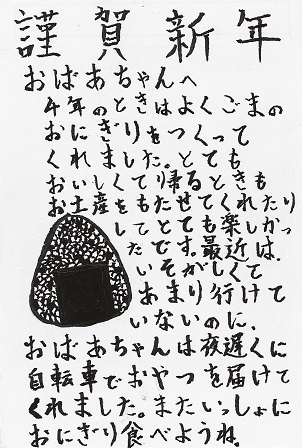 謹賀新年
おばあちゃんへ
4年のときはよくごまの
おにぎりをつくって
くれました。とても
おいしくて帰るときも
お土産をもたせてくれたり
してとても楽しかっ
たです。最近は、
いそがしくて
あまり行けて
いないのに、
おばあちゃんは夜遅くに
自転車でおやつを届けて
くれました。またいっしょに
おにぎり食べようね